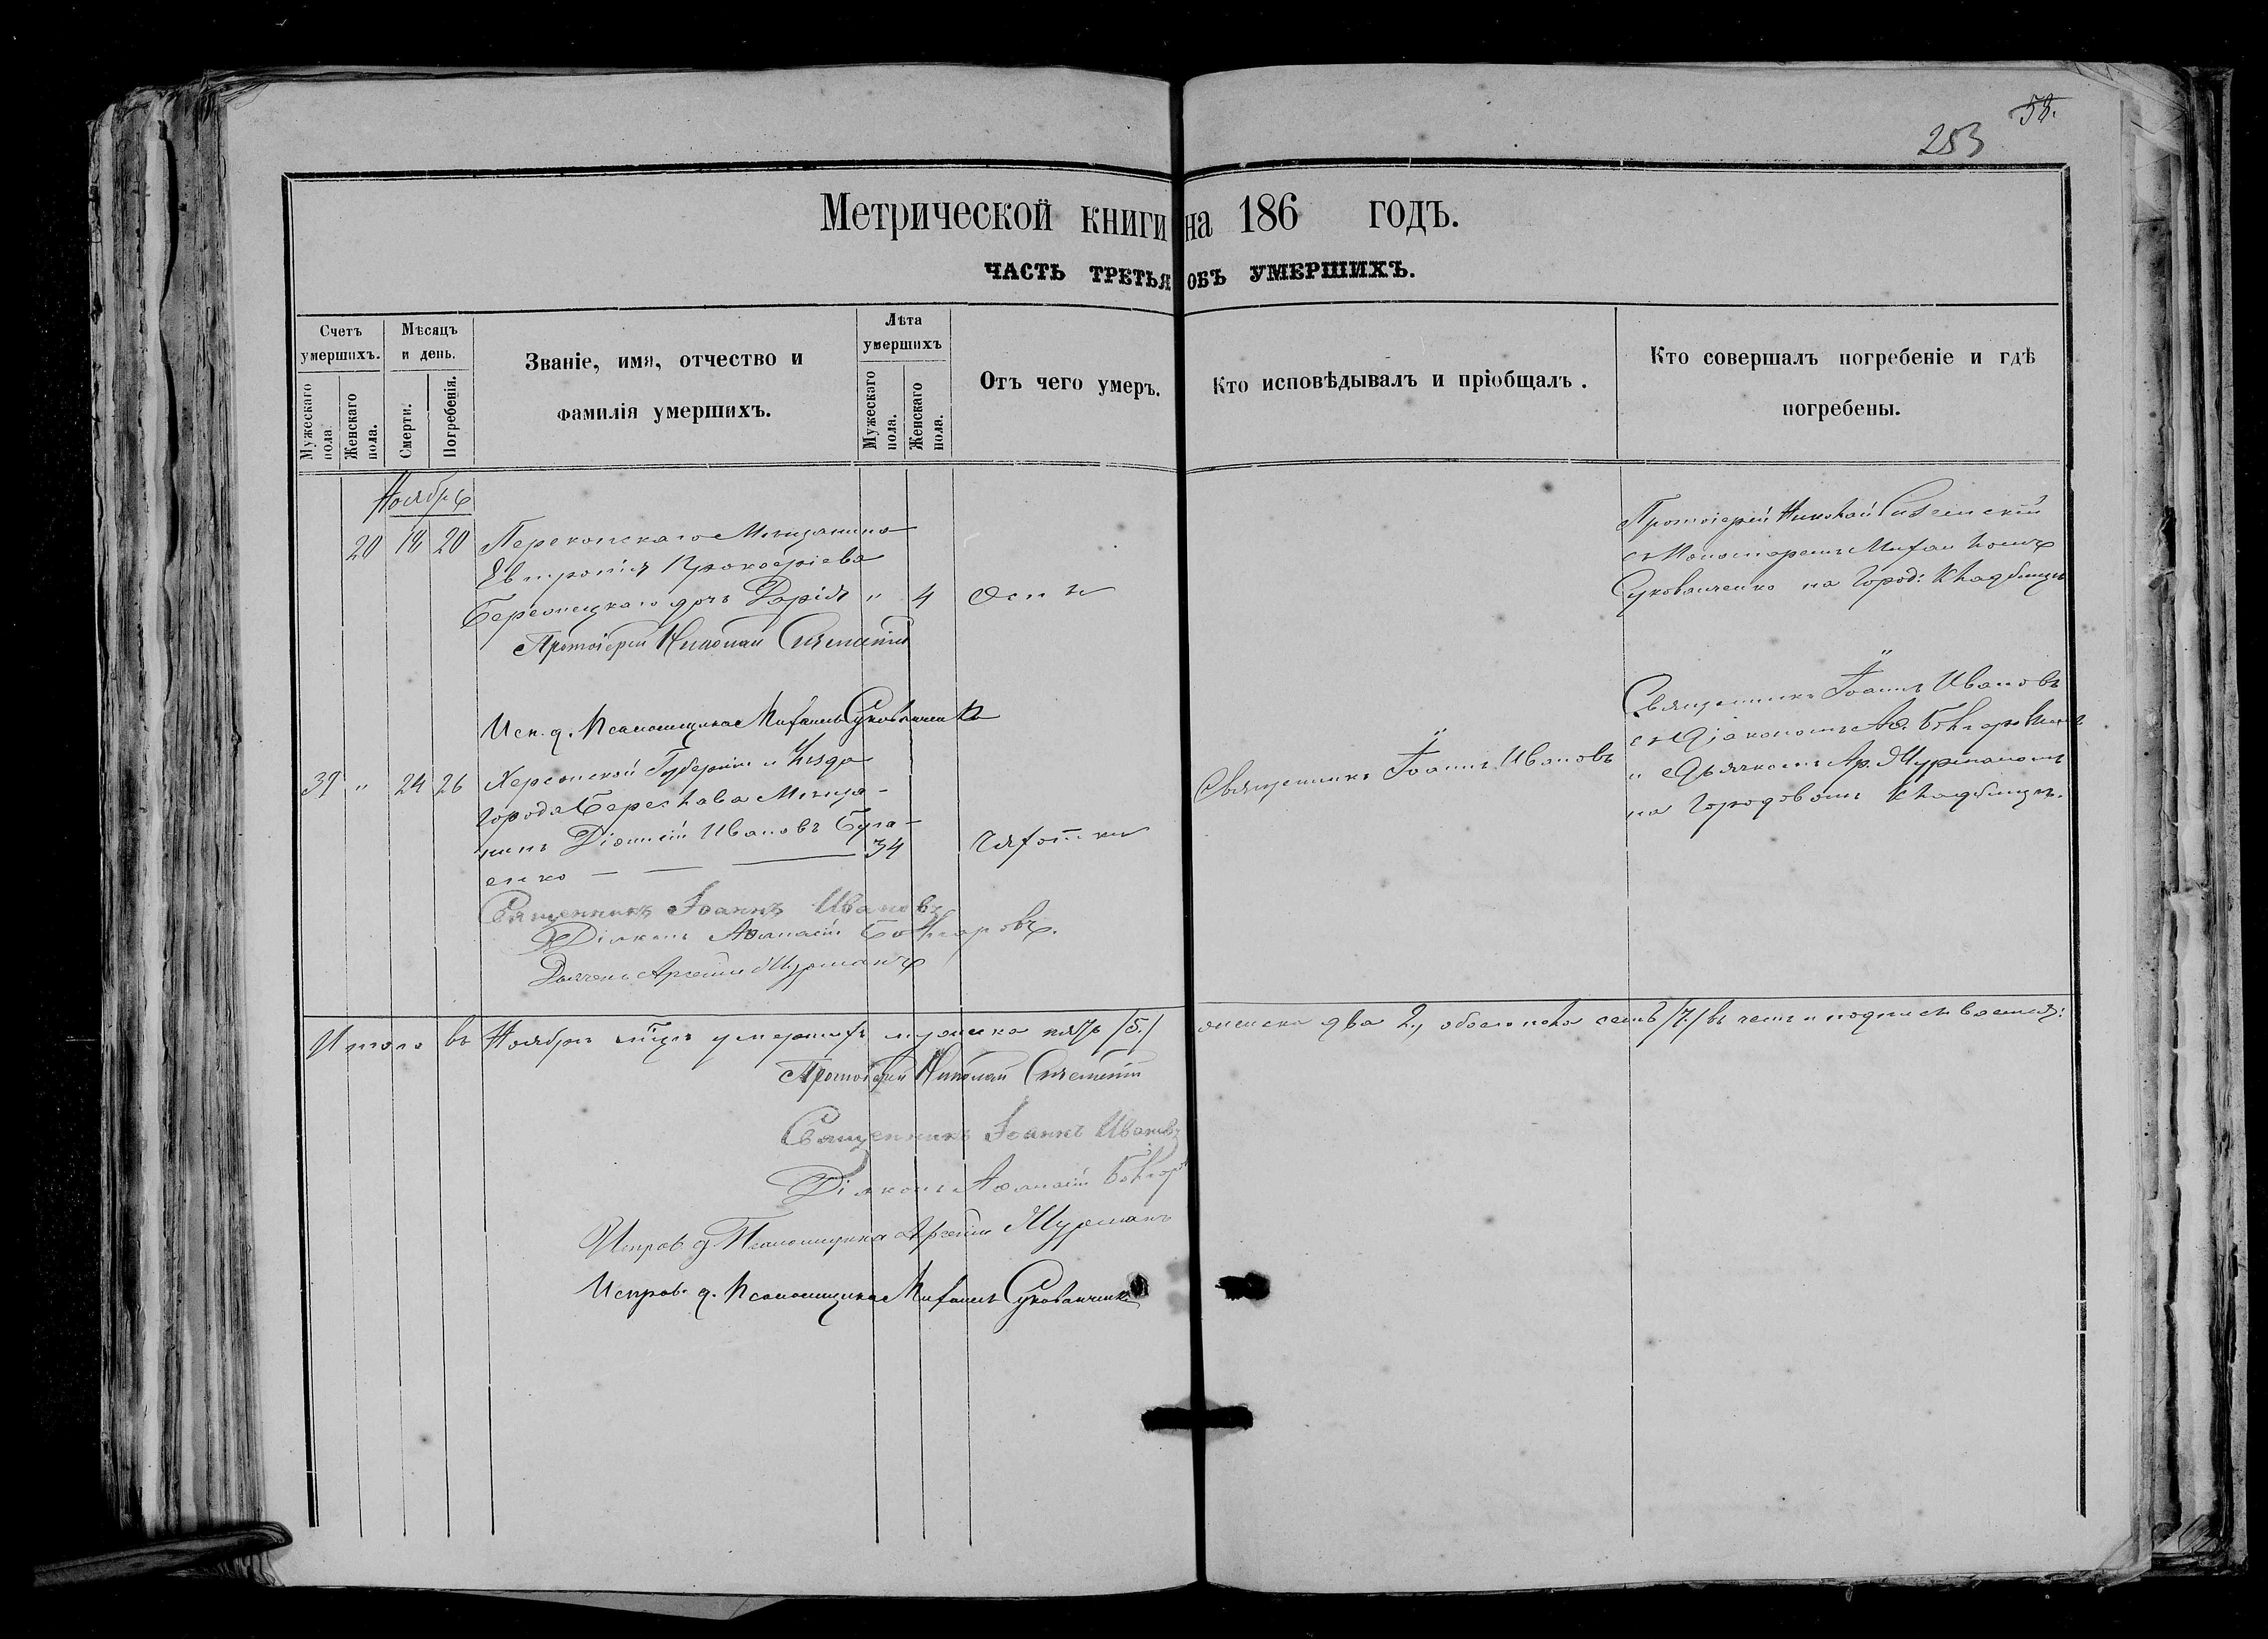 58.
253
Метрической книги на 186 годъ.
ЧАСТЬ ТРЕТЬЯ ОБЪ УМЕРШИХЪ.
Счетъ умершихъ.
Мужескаго пола
Женскаго пола.
Мѣсяцъ и день.
Смерти.
Погребенія.
Званіе, имя, отчество и
фамилія умершихъ.
Лѣта умершихъ
Мужескаго пола.
Женскаго пола.
Отъ чего умеръ.
Кто исповѣдывалъ и пріобщалъ.
Кто совершалъ погребеніе и гдѣ
погребены.
Ноябрь
20 18 20 Перекопскаго Мѣщанина
Евтропія Прокофіева
дочь Дарія " 4 Оспы
Протоіерей Николай
съ Пономаремъ Михаиломъ
Сукованченко на Город: Кладбищѣ
Протоіерей Николай
Исп. д. Псаломщика Михаилъ Сукованченко
39 " 24 26 Херсонской Губерніи и Уѣзда
города Береслава Мѣща-
нинъ Діонисій Ивановъ Буга-
енко — — — 34 Чахотки
Священникъ Іоаннъ Ивановъ
Священникъ Іоаннъ Ивановъ
съ Діакономъ Аѳ. Болгаровымъ
и Дьячкомъ Ар. Мурманомъ
на Городовомъ Кладбищѣ.
Священникъ Іоаннъ Ивановъ
Діаконъ Аѳанасій Болгаровъ.
Дьячекъ Арсеній Мурманъ
Итого въ Ноябрѣ мѣсяцѣ умершихъ мужеска пять /5./ женска два 2., обоего пола семь /7./ въ чемъ и подписываемся:
Протоіерей Николай
Священникъ Іоаннъ Ивановъ
Діаконъ Аѳанасій Болгаровъ
Исправ. д. Псаломщика Арсеній Мурманъ
Исправ. д. Псаломщика Михаилъ Сукованченко